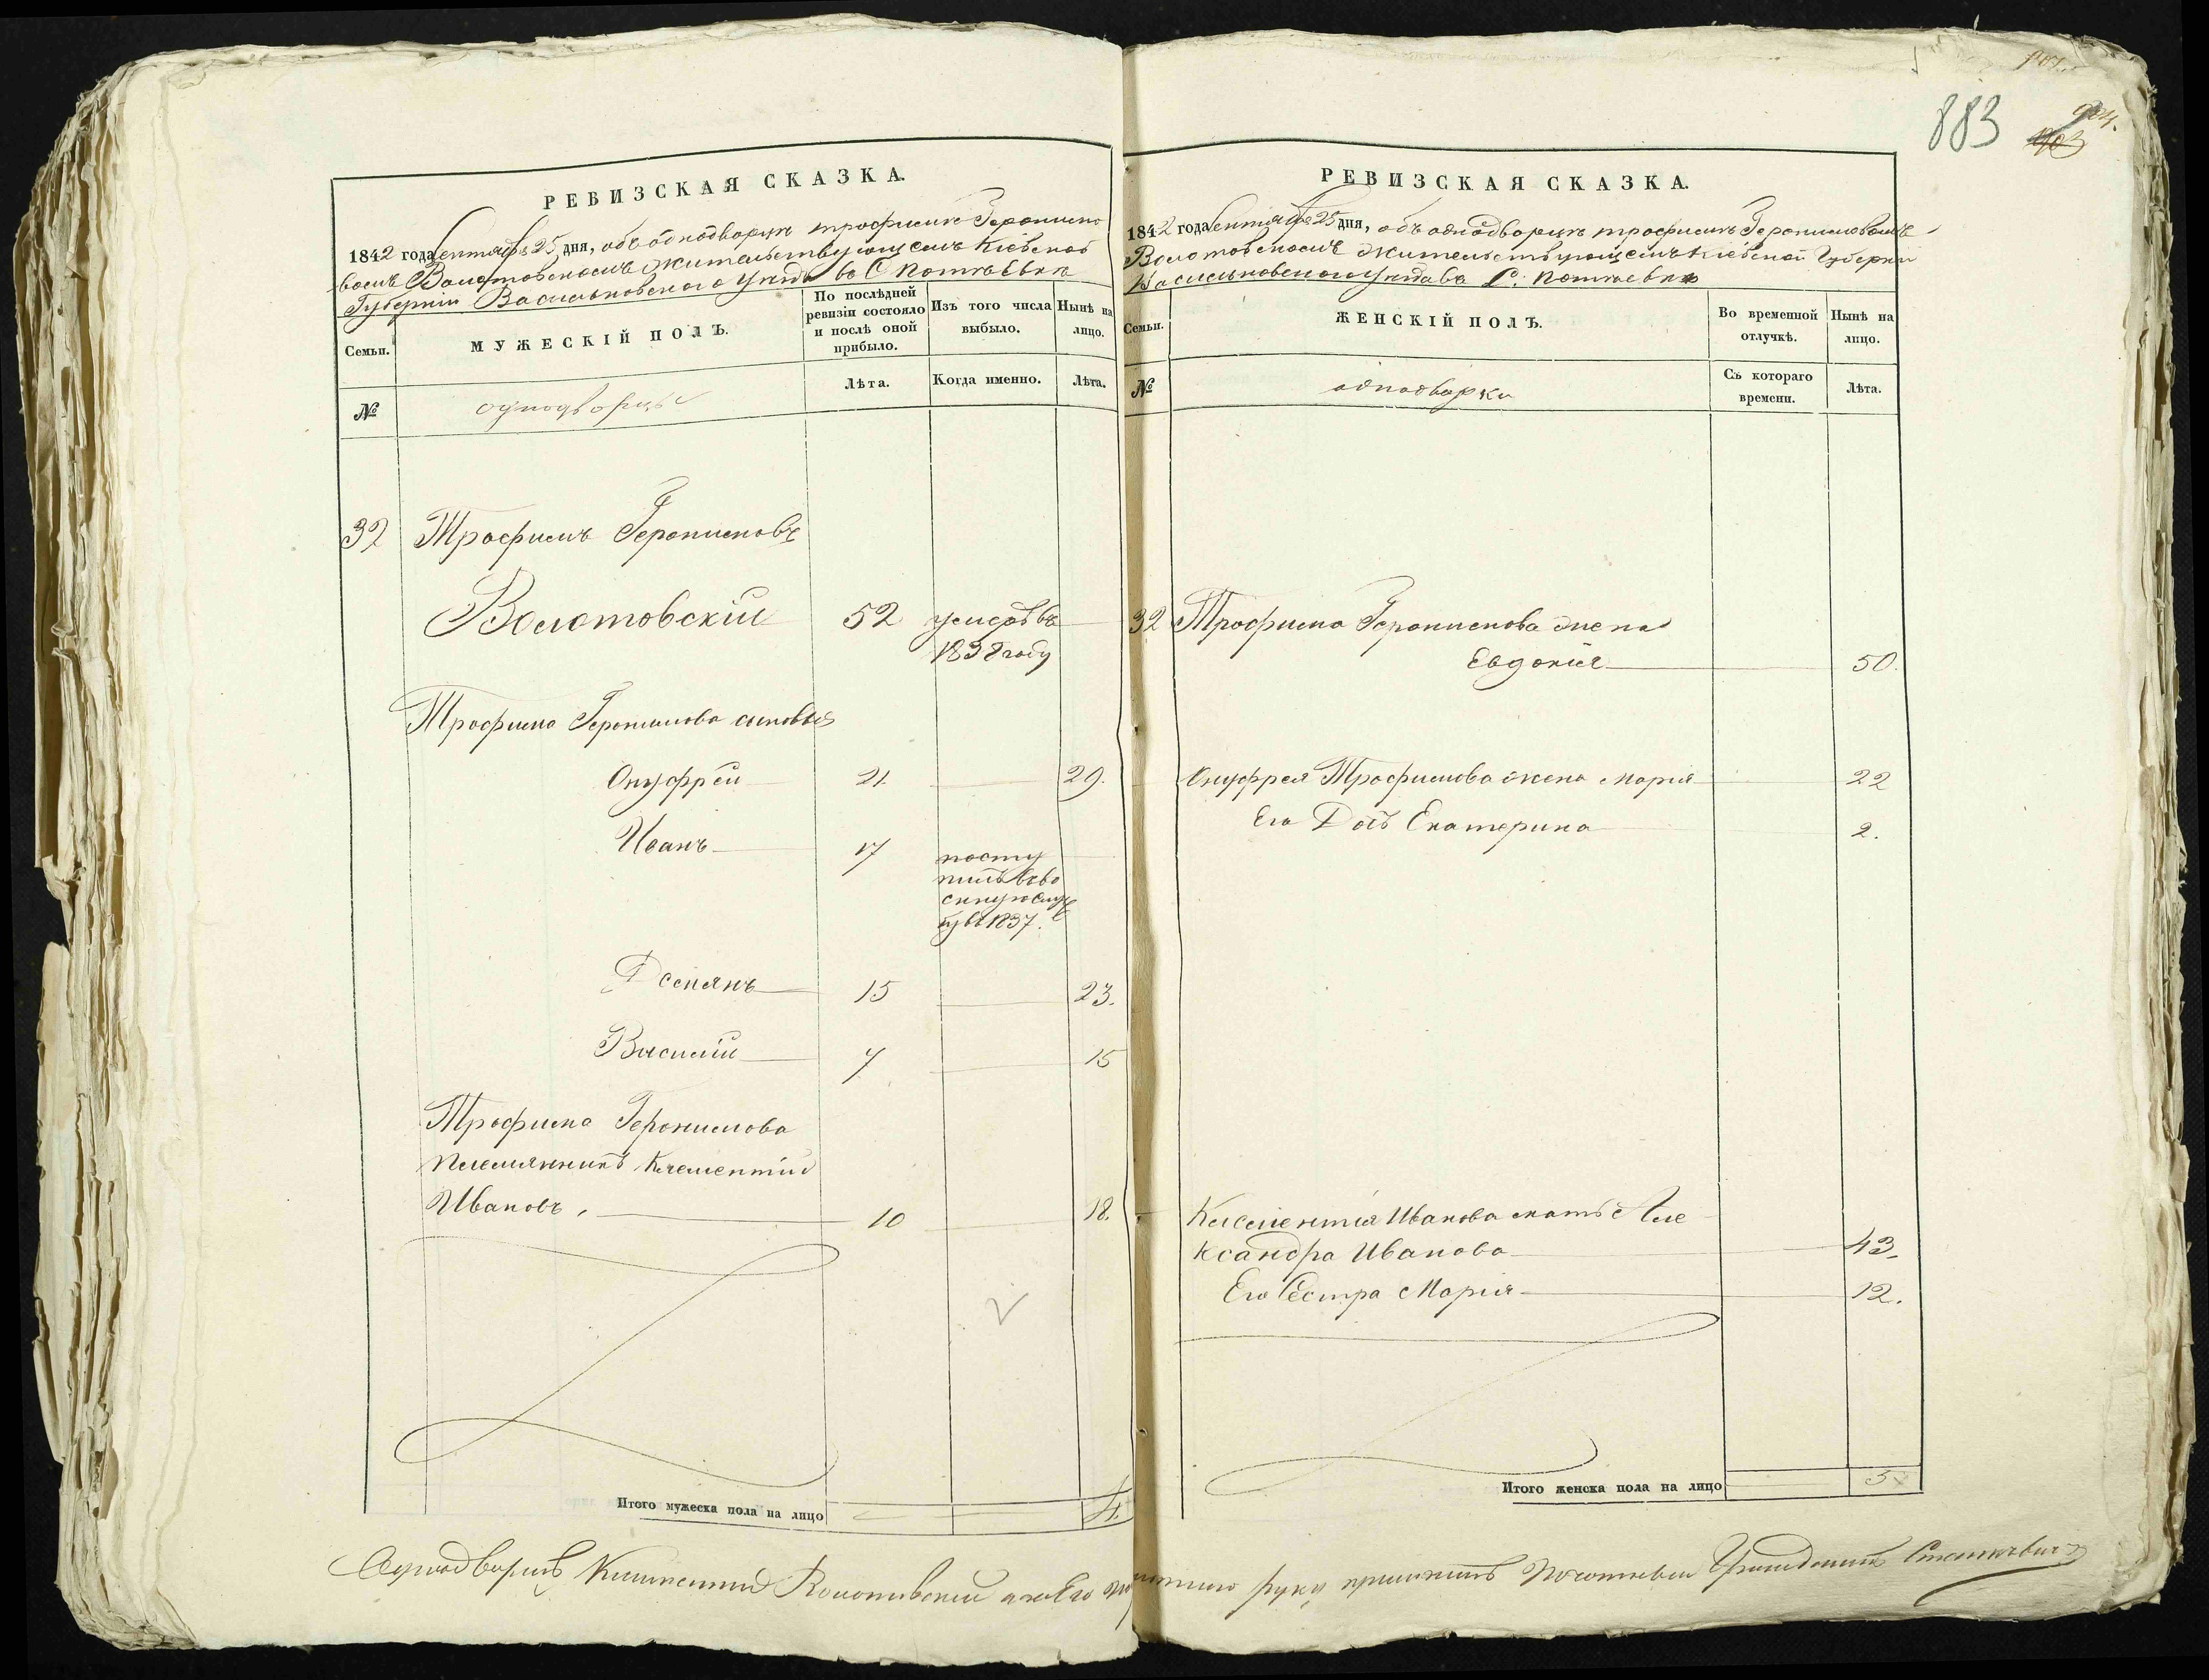 883
903
РЕВИЗСКАЯ СКАЗКА.
1842 года Сентября 25 дня, объ однодворцѣ Трофимѣ Геронимо
вомъ Волотовскомъ жительствующемъ Кіевской
Губерніи Васильковскаго Уѣзда въ С.
Семьи.
МУЖЕСКІЙ ПОЛЪ.
По послѣдней ревизіи состояло и послѣ оной прибыло.
Изъ того числа выбыло.
Нынѣ на лицо.
№
однодворцы
Лѣта.
Когда именно.
Лѣта.
32 Трофимъ Геронимовъ
Волотовскій 52 умеръ въ
1838 году
Трофима Геронимова сыновья
Онуфрей 21. 29.
Иванъ 17 посту
пилъ въ во
енную служ
бу въ 1837.
Демянъ 15 23.
Василій 7 15
Трофима Геронимова
племянникъ Клементій
Ивановъ, 10 18.
Итого мужеска пола на лицо 4.
РЕВИЗСКАЯ СКАЗКА.
1842 года Сентября 25 дня, объ однодворцѣ Трофимѣ Геронимовомъ
Волотовскомъ жительствующемъ Кіевской Губерніи
Васильковскаго Уѣзда въ С.
Семьи.
ЖЕНСКІЙ ПОЛЪ.
Во временной отлучкѣ.
Нынѣ на лицо.
№
однодворки
Съ котораго времени.
Лѣта.
32 Трофима Геронимова жена
Евдокія 50.
Онуфрея Трофимова жена Марія 22
Его Дочь Екатерина 2.
Клементія Иванова мать Але
ксандра Иванова 43.
Его Сестра Марія 12.
Итого женска пола на лицо 5
Однодворецъ Волотовский а за Его руку приложилъ